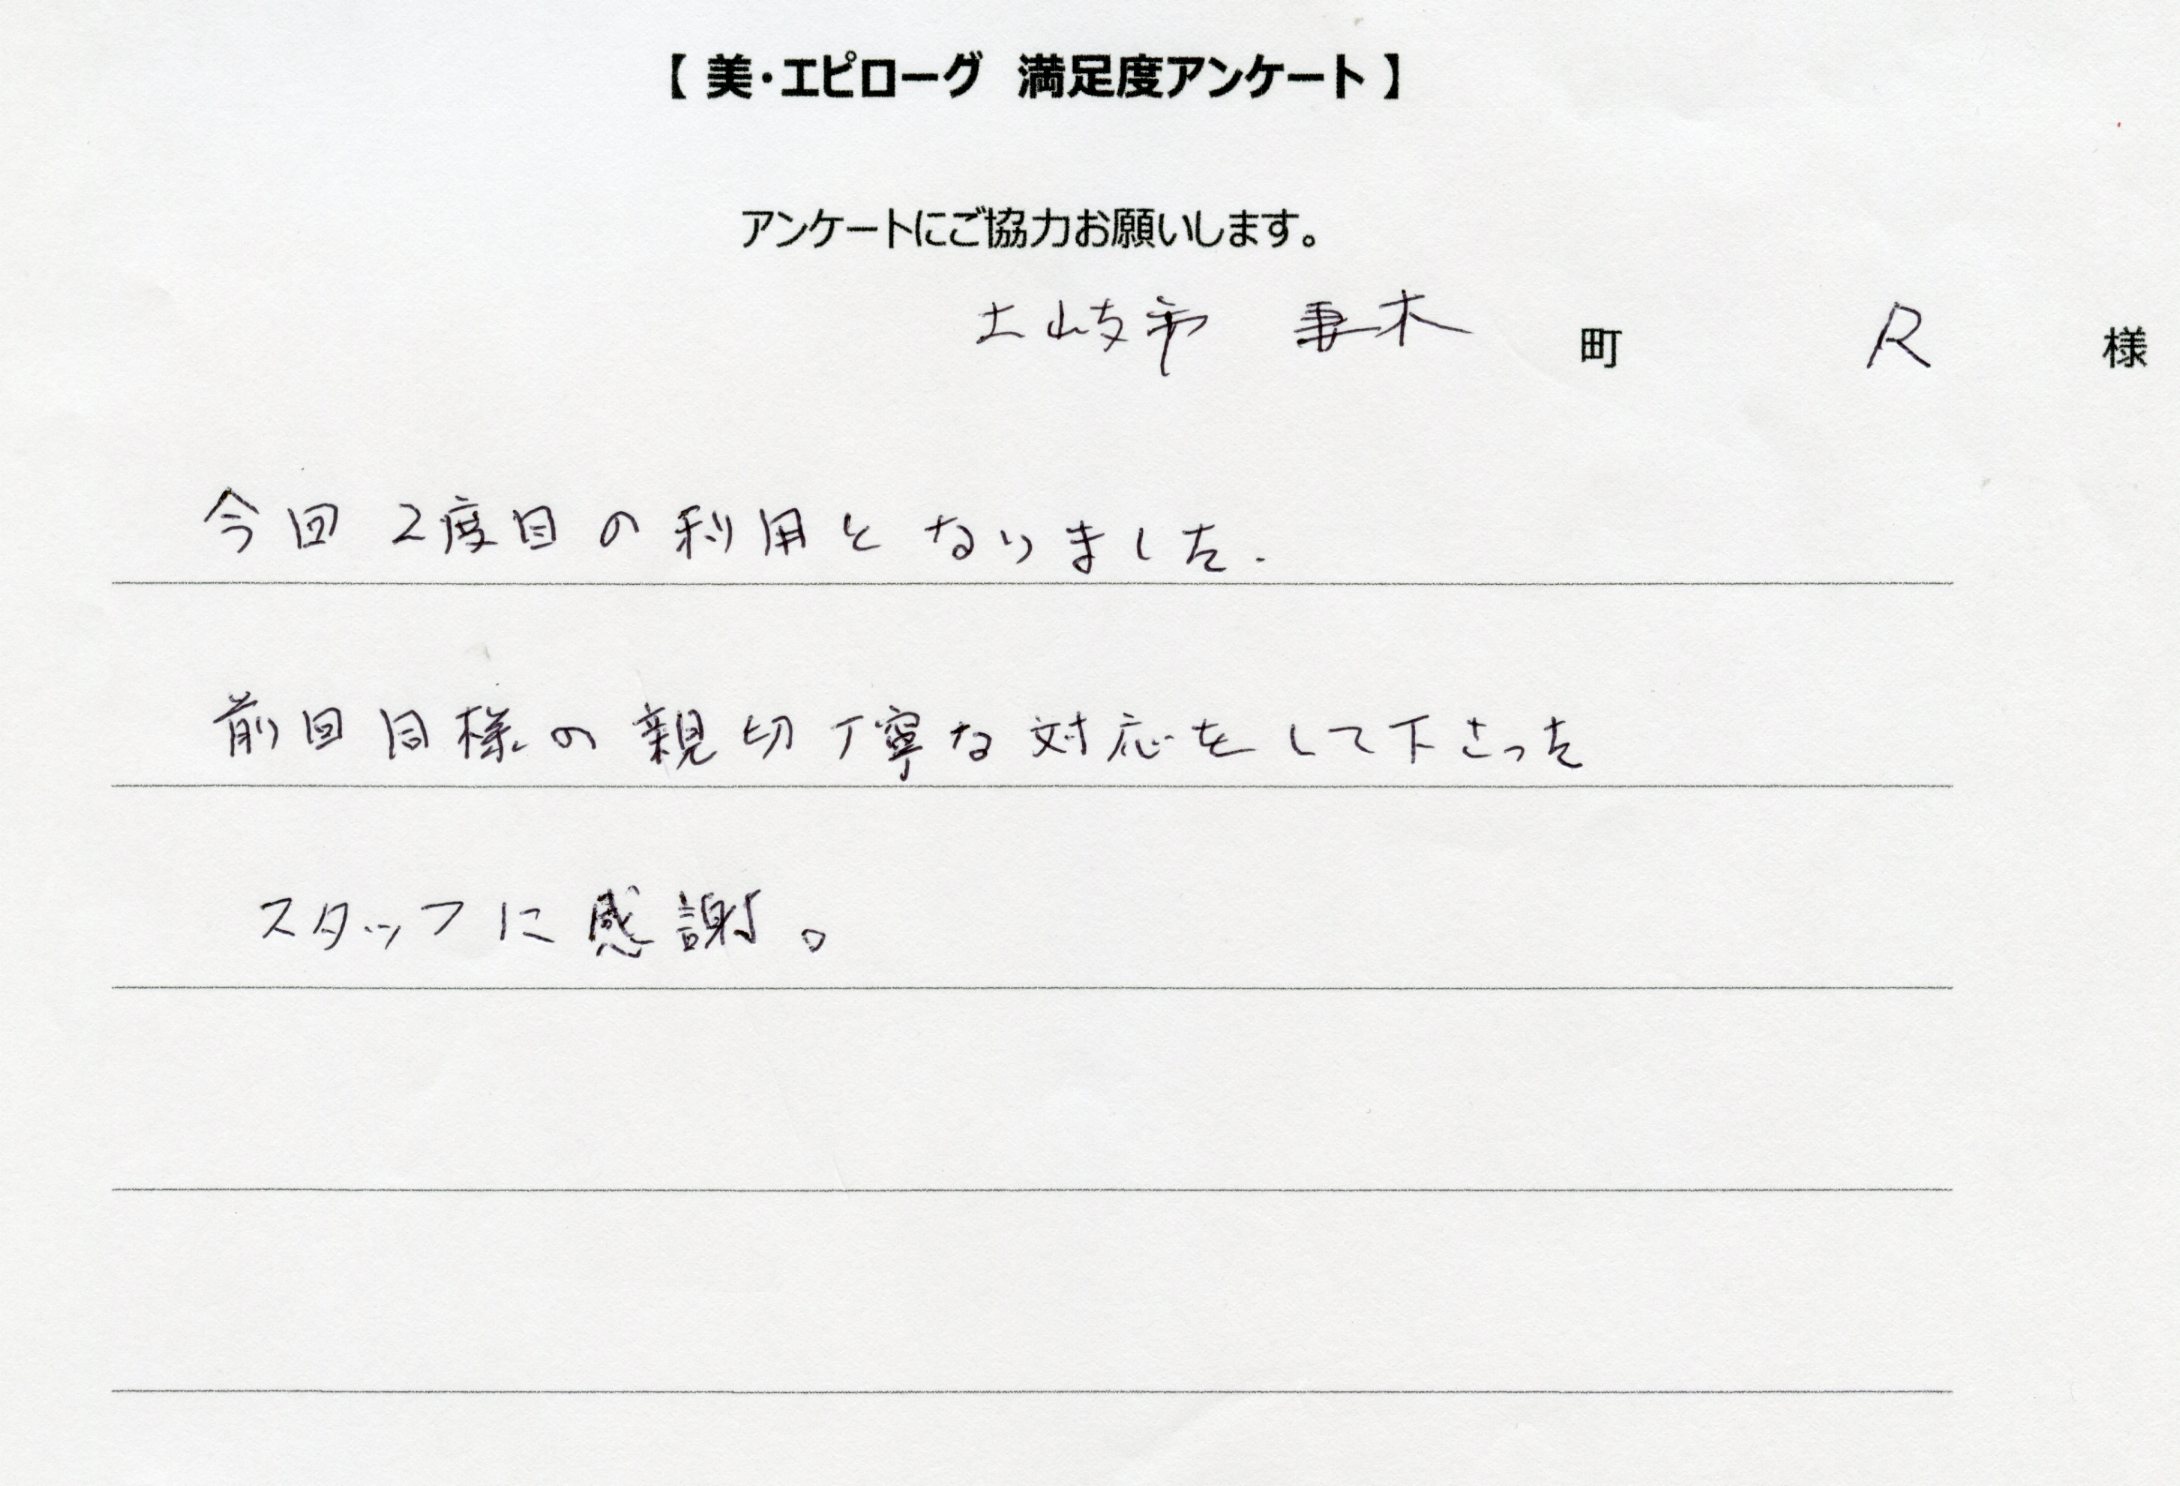 【 美・エピローグ　満足度アンケート 】
アンケートにご協力お願いします。
土岐市　妻木　町　R　様
今回2度目の利用となりました.
前回同様の親切丁寧な対応をして下さった
スタッフに感謝。